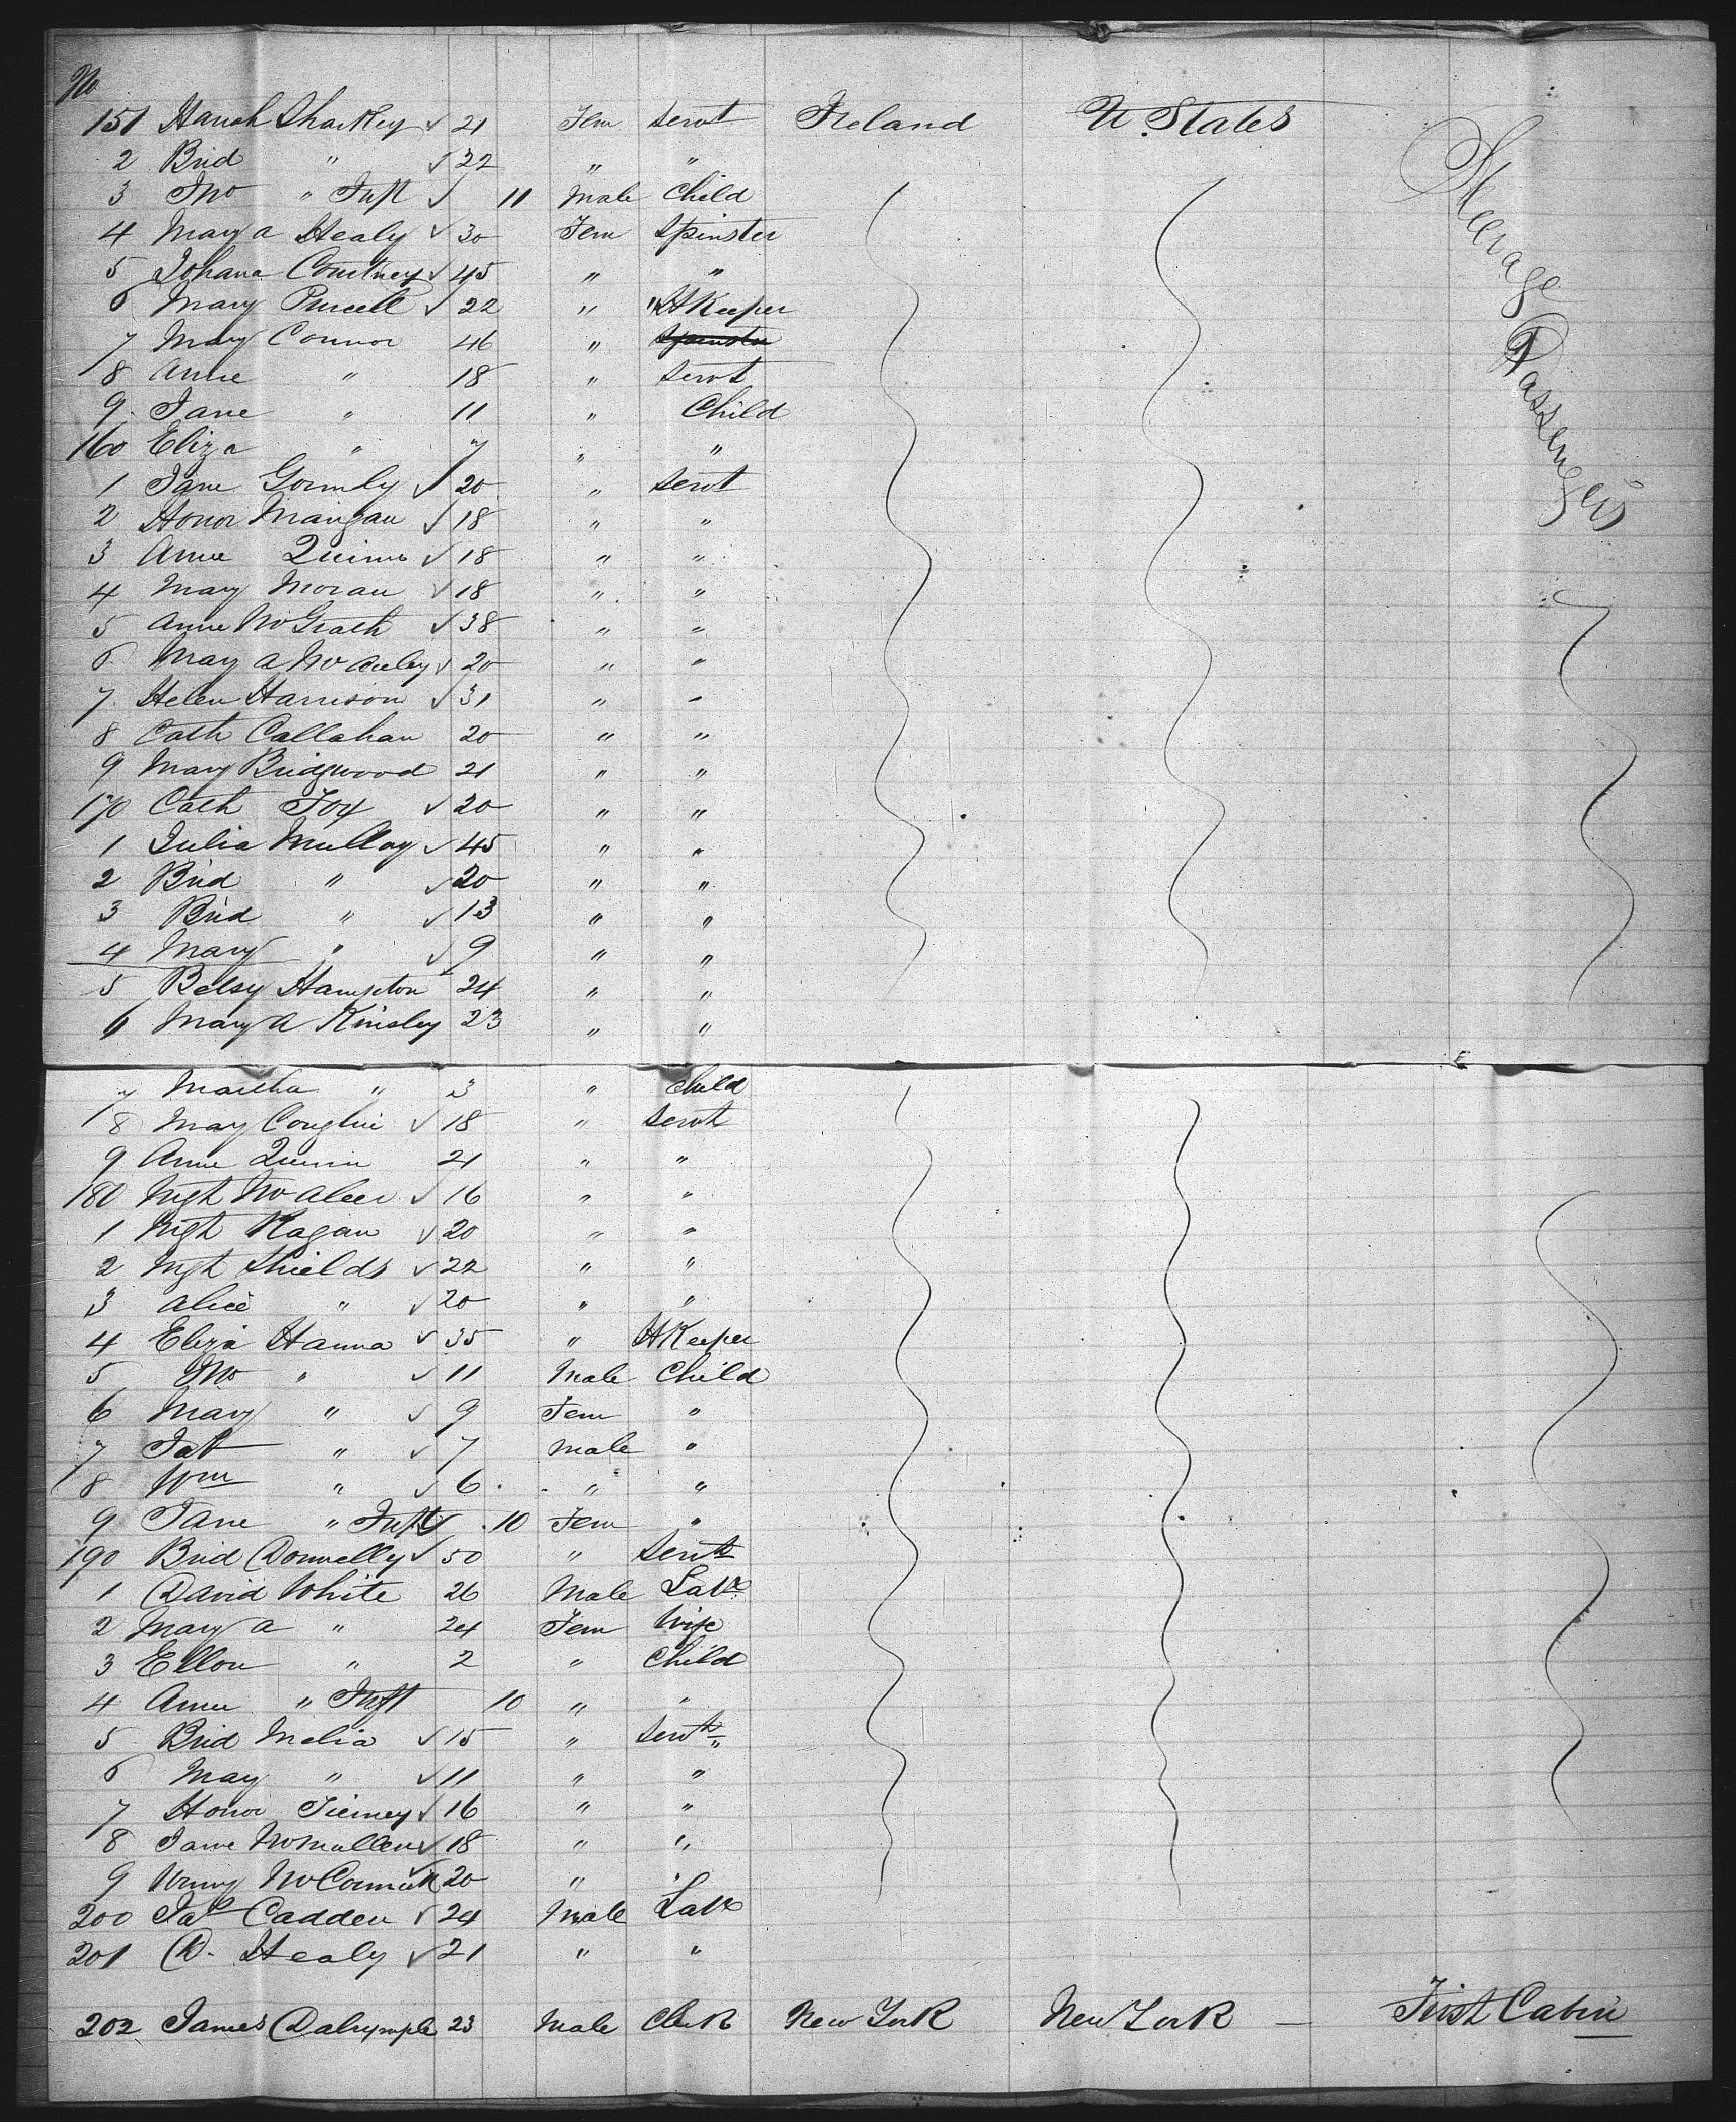 No
151 Hanah Sharkey ✓ 21 Fem Servt Ireland U. States
2 Brid " ✓ 22 " "
3 Jno " Inft ✓ 11 Male Child
4 Mary a Healy ✓ 30 Fem Spinster
5 Johana Courtney ✓ 45 " "
6 Mary Purcell ✓ 22 " " HKeeper
7 Mary Connor 46 " Spinster
8 Anne " 18 " Servt
9 Jane " 11 " Child
160 Eliza " 7 " "
1 Jane Gormly ✓ 20 " Servt
2 Honor Mangan ✓ 18 " "
3 Anne Quinn ✓ 18 " "
4 Mary Moran ✓ 18 " "
5 Anne McGrath ✓ 38 " "
6 Mary a McAuley ✓ 20 " "
7 Helen Harrison ✓ 31 " "
8 Cath Callahan 20 " "
9 Mary Bridgwood 21 " "
170 Cath Foy ✓ 20 " "
1 Julia Mulloy ✓ 45 " "
2 Brid " ✓ 20 " "
3 Brid " ✓ 13 " "
4 Mary " ✓ 9 " "
5 Betsy Hampton 24 " "
6 Mary A Kinsley 23 " "
7 Martha " 3 " Child
8 Mary Coughlin ✓ 18 " Servt
9 Anne Quinn 21 " "
180 Mgt McAleer ✓ 16 " "
1 Mgt Ragan ✓ 20 " "
2 Mgt Shields ✓ 22 " "
3 Alice " ✓ 20 " "
4 Eliza Hanna ✓ 35 " HKeeper
5 Jno " ✓ 11 Male Child
6 Mary " ✓ 9 Fem "
7 Pat " ✓ 7 Male "
8 Wm " ✓ 6 " "
9 Jane " Inft ✓ 10 Fem "
190 Brid Donnelly ✓ 50 " Servt
1 David White 26 Male Labr
2 Mary a " 24 Fem Wife
3 Ellon " 2 " Child
4 Anne " Inft 10 " "
5 Brid Melia ✓ 15 " Servt "
6 May " ✓ 11 " "
7 Honor Tierney ✓ 16 " "
8 Jane McMullen ✓ 18 " "
9 McCormick ✓ 20 " "
200 Jas Cadden ✓ 24 Male Labr
201 D. Healy ✓ 21 " "
202 James Dalrymple 23 Male Clerk New York New York — First Cabin
Steerage Passengers